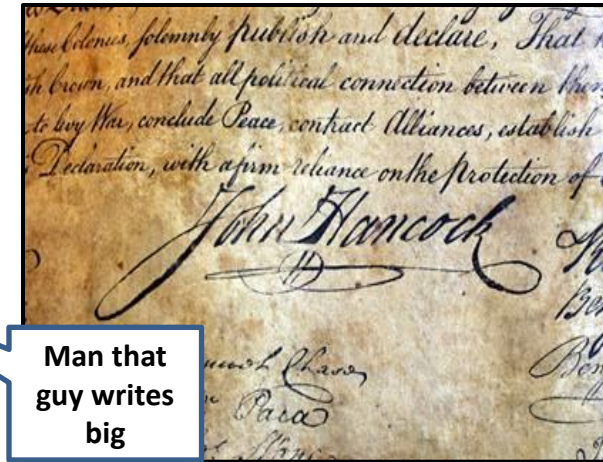 these Colonies, solemnly publish and declare, That
ish Crown, and that all political connection between them
to levy War, conclude Peace, contract Alliances, establish
Declaration, with a firm reliance on the protection of
John Hancock
Chase
Paca
Ben
Man that
guy writes
big